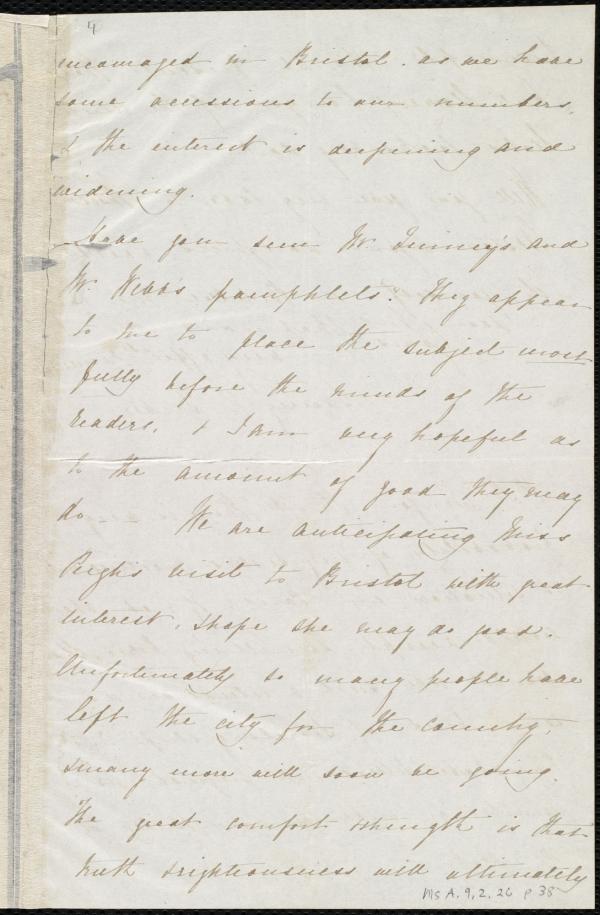 4
encouraged in Bristol. as we have
some accessions to our numbers,
& the interest is deepening and
widening.
Have you seen Mr. and
Mr. Webb's pamphlets? They appear
to me to place the subject most
fully before the minds of the
readers, & I am very hopeful as
to the amount of good they may
do – We are anticipating Miss
Pugh's visit to Bristol with great
interest, & hope she may do good.
Unfortunately so many people have
left the city for the country,
& many more will soon be going.
The great comfort & strength is that
truth & righteousness will ultimately
Ms A. 9. 2. 26 p 38